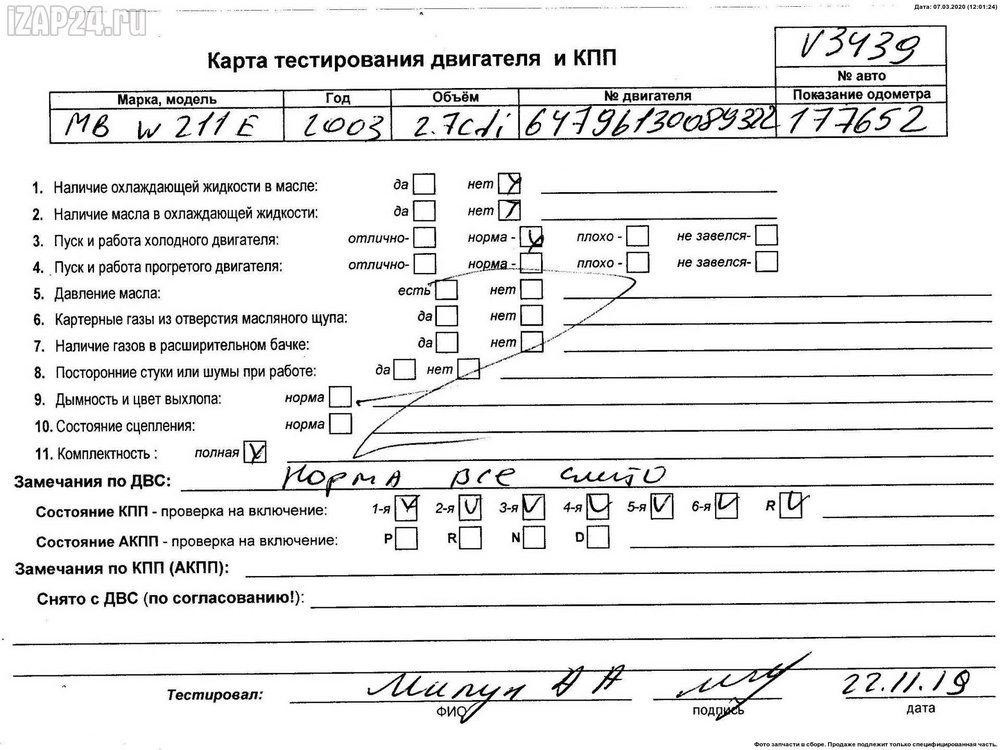 Дата: 07.03.2020 (12:01:24)
iZAP24.ru
V3439
Карта тестирования двигателя и КПП
№ авто
Марка, модель Год Объём № двигателя Показание одометра
MB W 211 E 2003 2.7cdi 64796130089322 177652
1. Наличие охлаждающей жидкости в масле: да нет
2. Наличие масла в охлаждающей жидкости: да нет
3. Пуск и работа холодного двигателя: отлично- норма - плохо - не завелся-
4. Пуск и работа прогретого двигателя: отлично- норма - плохо - не завелся-
5. Давление масла: есть нет
6. Картерные газы из отверстия масляного щупа: да нет
7. Наличие газов в расширительном бачке: да нет
8. Посторонние стуки или шумы при работе: да нет
9. Дымность и цвет выхлопа: норма
10. Состояние сцепления: норма
11. Комплектность : полная
Замечания по ДВС: норма все
Состояние КПП - проверка на включение: 1-я 2-я 3-я 4-я 5-я 6-я R
Состояние АКПП - проверка на включение: P R N D
Замечания по КПП (АКПП):
Снято с ДВС (по согласованию!):
Тестировал: 22.11.19
ФИО подпись дата
Фото запчасти в сборе. Продаже подлежит только специфицированная часть.